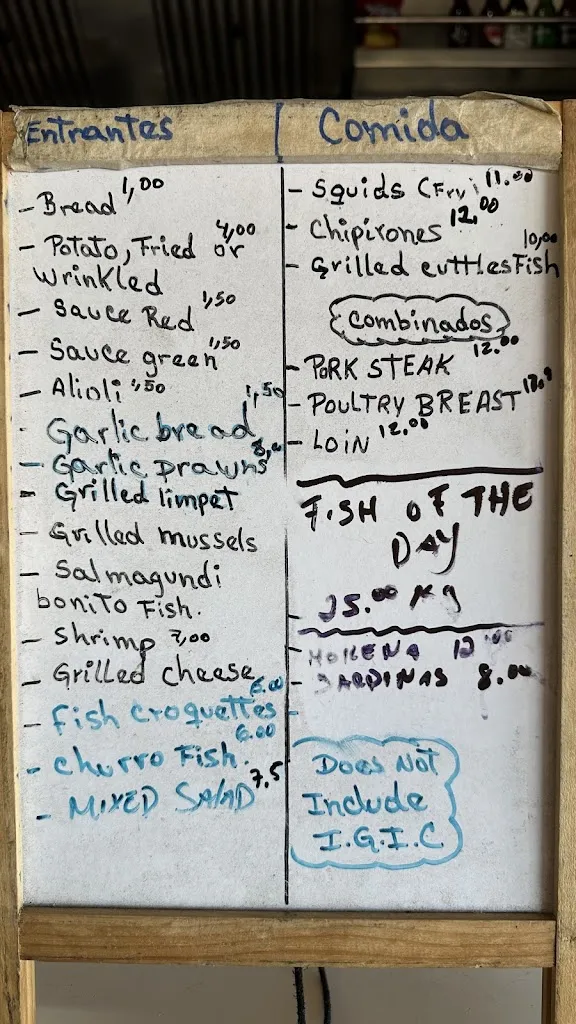 Entrantes
- Bread 1,00
- Potato, Fried or 4,00
wrinkled
- Sauce Red 1,50
- Sauce green 1,50
- Alioli 1,50
- Garlic bread 1,50
- Garlic prawns
- Grilled limpet
- Grilled mussels
- Salmagundi
bonito Fish.
- Shrimp 7,00
- Grilled cheese
- Fish croquettes 6.00
- Churro Fish. 6.00
- MIXED SALAD 7,5
Comida
- Squids (Fry) 11.00
- Chipirones 12.00
- Grilled cuttlesFish 10,00
Combinados
- PORK STEAK 12.00
- POULTRY BREAST
- LOIN 12.00
FISH OF THE
DAY
- 25.00 Kg
- MORENA 12.00
- SARDINAS 8.00
Does Not
Include
I.G.I.C